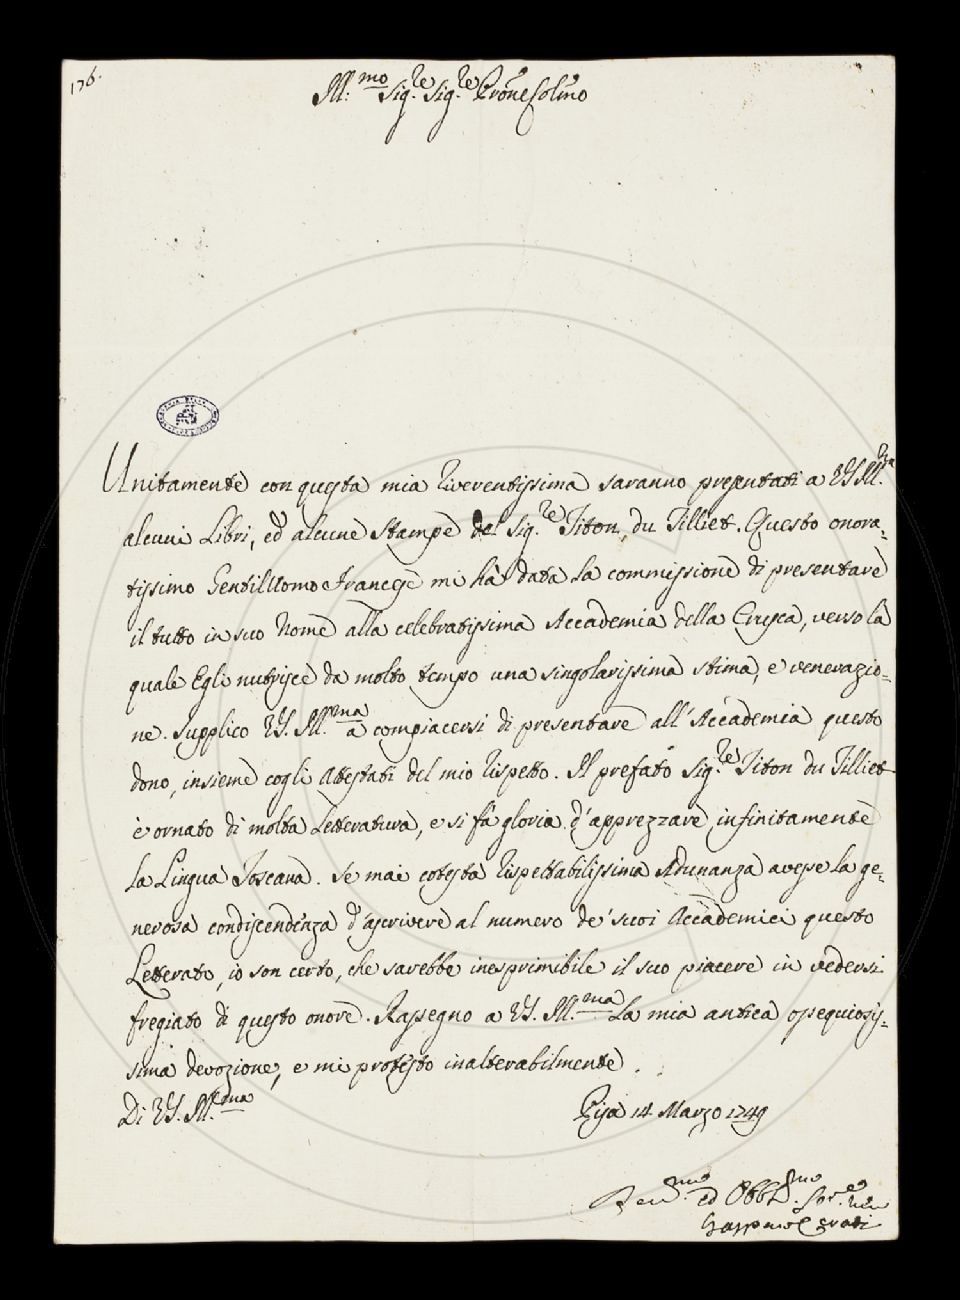 176.
Ill:mo Sig.re Sig.re Prõne Col̃mo
Unitamente con questa mia riverentissima saranno presentati a VS Ill.ma
alcuni Libri, ed alcune Stampe del Sig.re Titon du Tilliet. Questo onora-
tissimo Gentiluomo Francese mi hà data la commissione di presentare
il tutto in suo Nome alla celebratissima Accademia della Crusca, verso la
quale Egli nutrisce da molto tempo una singolarissima stima, e venerazio-
ne. Supplico VS. Ill.ma a compiacersi di presentare all'Accademia questo
dono, insieme cogli Attestati del mio rispetto. Il prefato Sig.re Titon du Tilliet
è ornato di molta Letteratura, e si fà gloria d'apprezzare infinitamente
la Lingua Toscana. Se mai cotesta rispettabilissima Adunanza avesse la ge-
nerosa condiscendenza d'ascrivere al numero de' suoi Accademici questo
Letterato, io son certo, che sarebbe inesprimibile il suo piacere in vedersi
fregiato di questo onore. Rassegno a VS. Ill.ma la mia antica ossequiosis-
sima devozione, e mi protesto inalterabilmente.
Di VS. Ill.ma
Pisa 14 Marzo 1749
Dev.mo ed Obbl.mo Ser.e vero
Gasparo Cerati